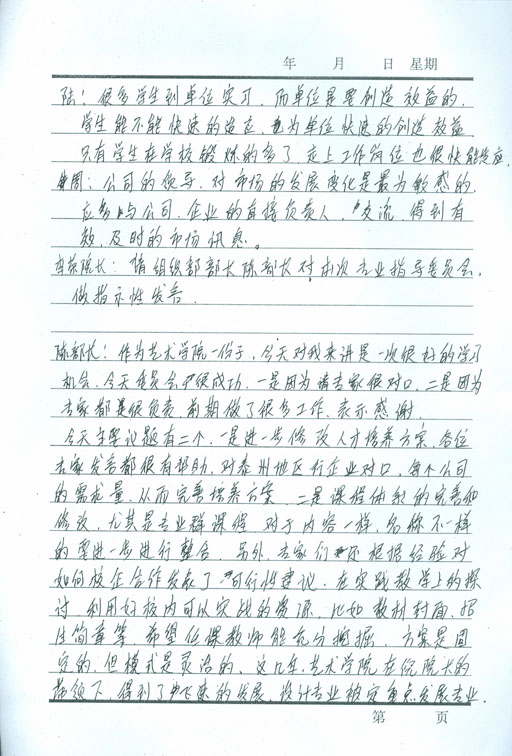 年 月 日 星期
陆：很多学生到单位实习，而单位是要创造效益的，
学生能不能快速的适应，也为单位快速的创造效益，
只有学生在学校锻炼的多了，走上工作岗位也很快能适应。
周：公司的领导，对市场的发展变化是最为敏感的，
应多与公司、企业的直接负责人，交流，得到有
效，及时的市场讯息。
院长：请组织部部长陈部长对本次专业指导委员会，
做指示性发言。
陈部长：作为艺术学院一份子，今天对我来讲是一次很好的学习
机会，今天委员会很成功，一是因为请专家很对口，二是因为
专家都是很负责，前期做了很多工作，表示感谢。
今天主要议题有二个，一是进一步修改人才培养方案，各位
专家发言都很有帮助，对泰州地区行企业对口，每个公司
的需求量，从而完善培养方案，二是课程体系的完善和
修改，尤其是专业群课程，对于内容一样，名称不一样
的要进一步进行整合，另外，专家们还根据经验对
如何校企合作发表了可行性建议，在实践教学上的探
讨，利用好校内可以实战的资源，比如教材封面、招
生简章等，希望任课教师能充分挖掘，方案是固
定的，但模式是灵活的，这几年，艺术学院在倪院长的
带领下，得到了飞速的发展，设计专业被定重点发展专业，
第 页